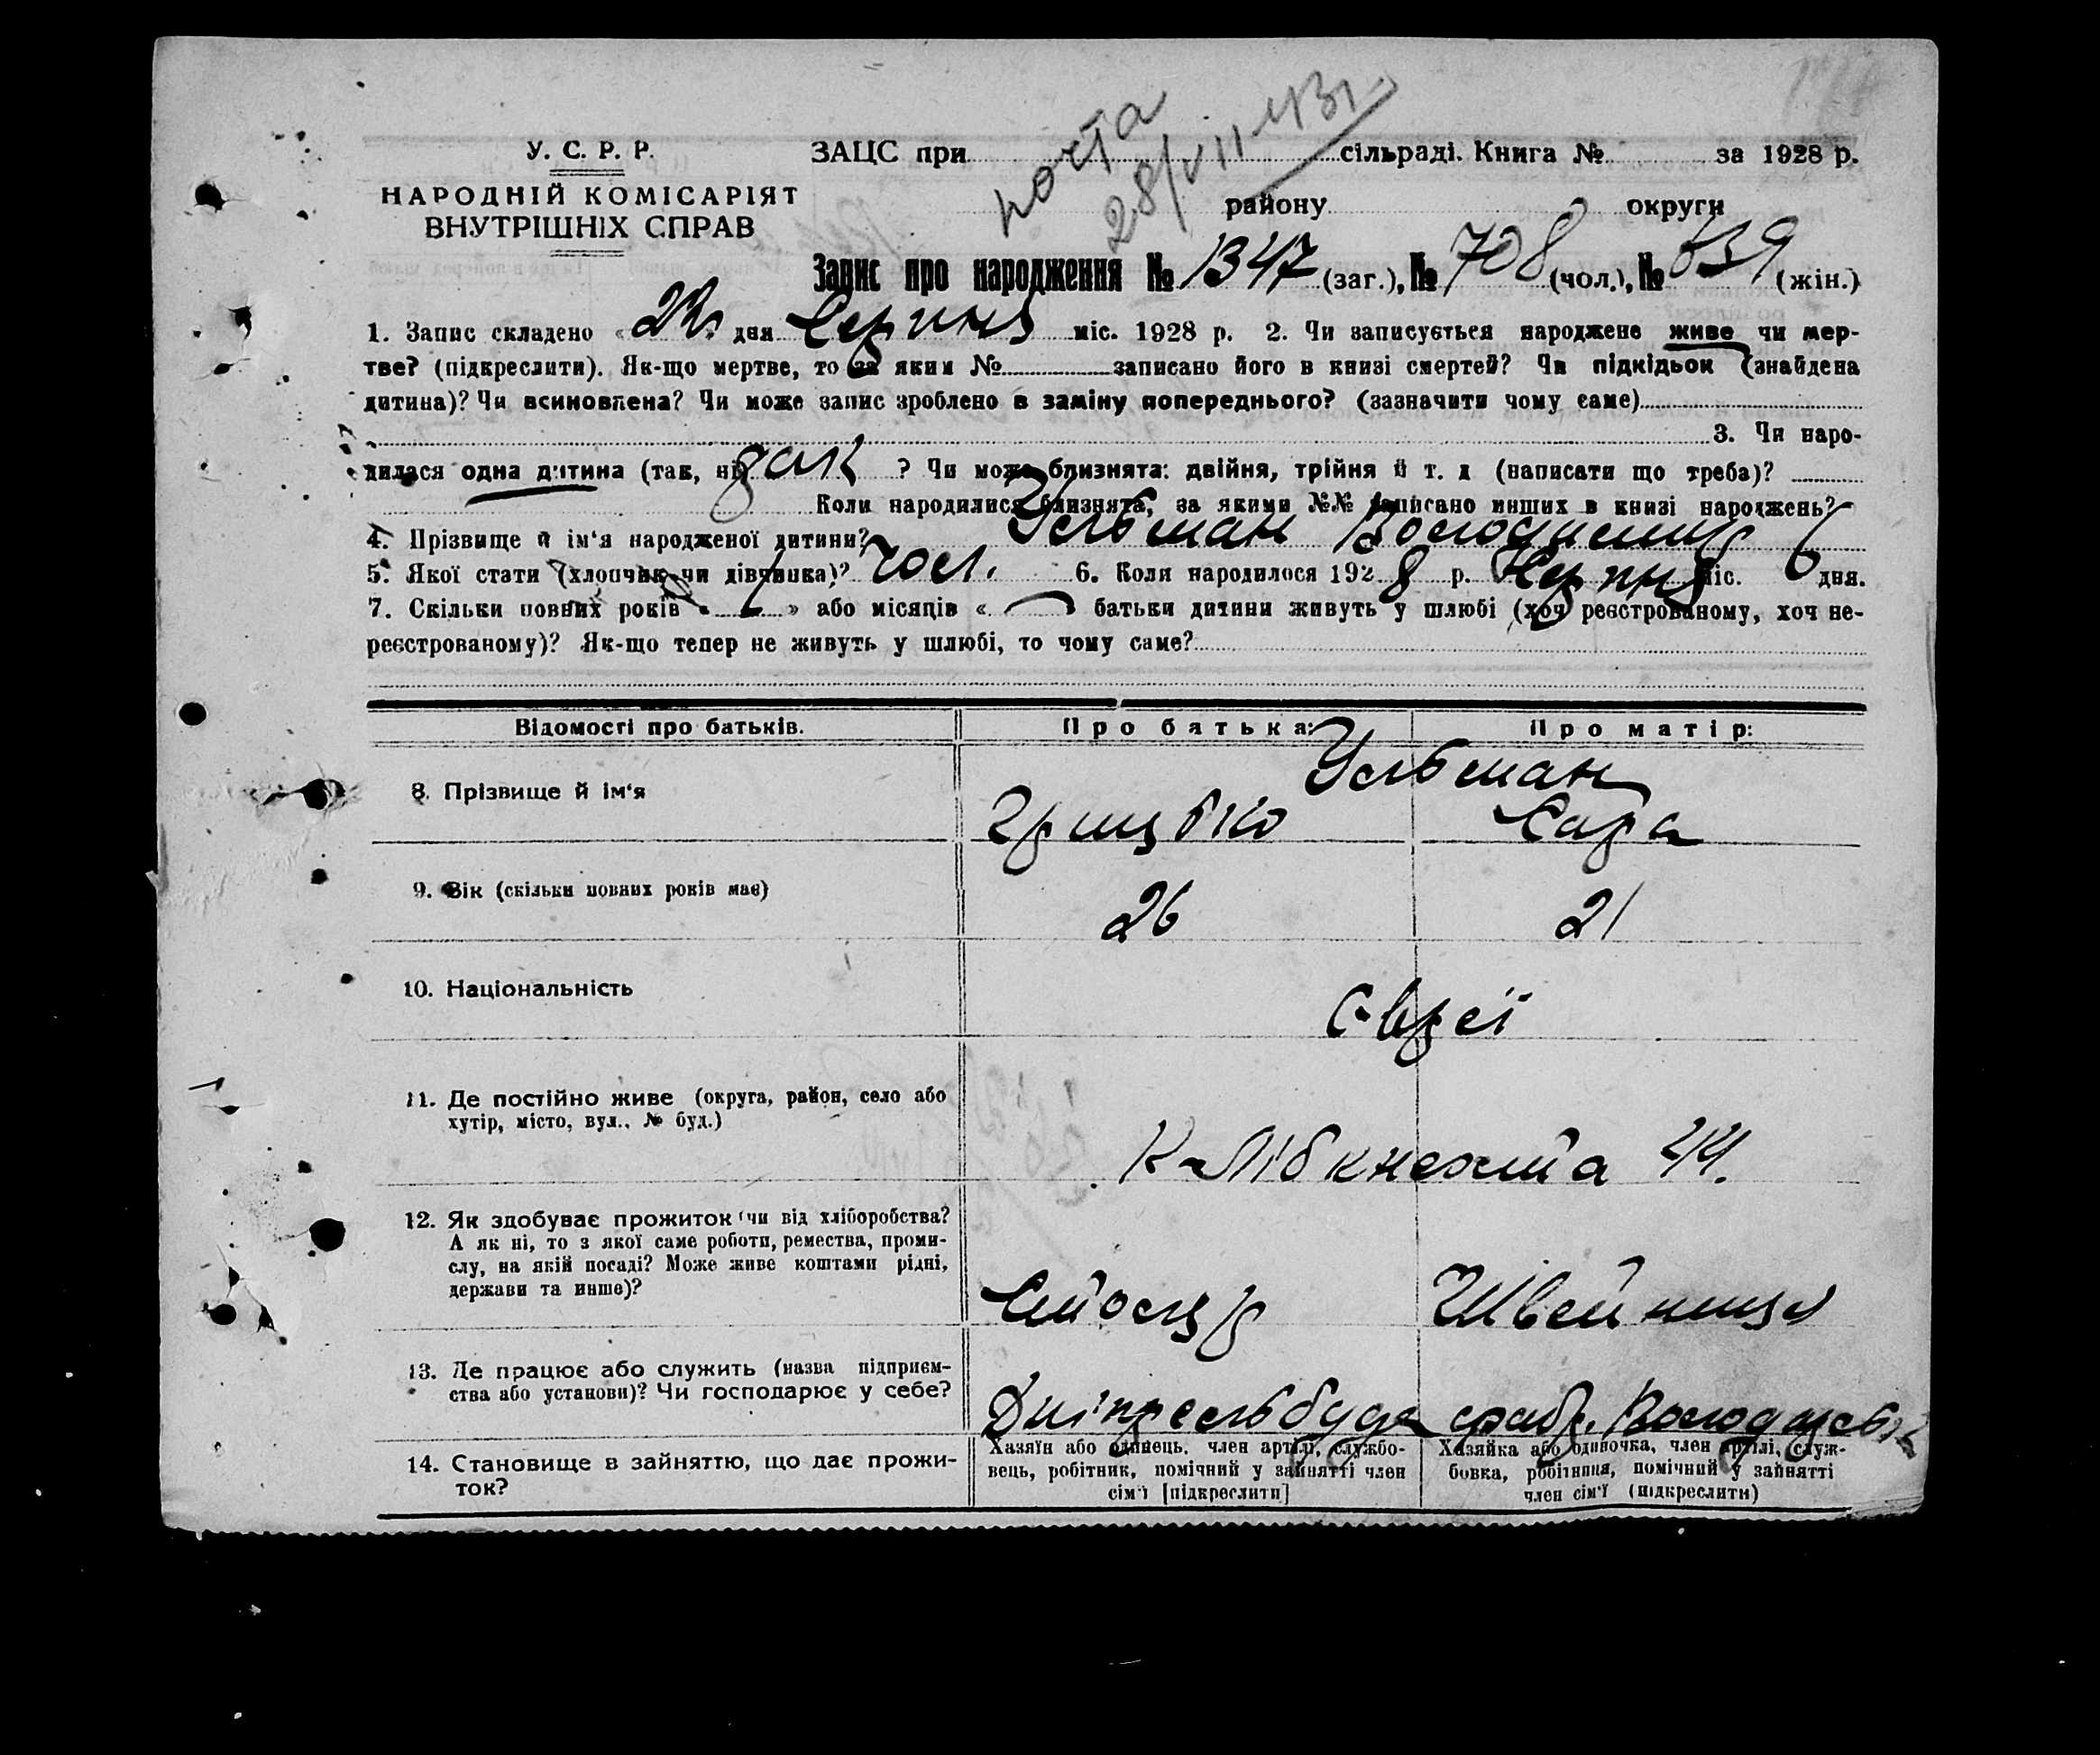 почта
28/VII 43 г.
У. С. Р. Р.
НАРОДНІЙ КОМІСАРІЯТ
ВНУТРІШНІХ СПРАВ
ЗАЦС при сільраді. Книга № за 1928 р.
району округи
Запис про народження № 1347 (заг.), № 708 (чол.), № 639 (жін.)
1. Запис складено « » дня Серпня міс. 1928 р. 2. Чи записується народжене живе чи мер-
тве? (підкреслити). Як-що мертве, то за яким № записано його в книзі смертей? Чи підкідьок (знайдена
дитина)? Чи всиновлена? Чи може запис зроблено в заміну попереднього? (зазначити чому саме)
3. Чи наро-
дилася одна дитина (так, ні) так ? Чи може близнята: двійня, трійня й т. д (написати що треба)?
Коли народилися близнята, за якими №№ записано инших в книзі народжень?
4. Прізвище й ім'я народженої дитини? Усльман Володимир
5. Якої стати (хлопчик чи дівчинка)? чол. 6. Коли народилося 1928 р. Серпня міс. 6 дня.
7. Скільки повних років « 1 » або місяців « — » батьки дитини живуть у шлюбі (хоч реєстрованому, хоч не-
реєстрованому)? Як-що тепер не живуть у шлюбі, то чому саме?
Відомості про батьків. Про батька: Про матір:
8. Прізвище й ім'я Усльман
Грицько Сара
9. Вік (скільки повних років має) 26 21
10. Національність Євреї
11. Де постійно живе (округа, район, село або
хутір, місто, вул., № буд.)
К-Лібкнехта 44.
12. Як здобуває прожиток (чи від хліборобства?
А як ні, то з якої саме роботи, ремества, проми-
слу, на якій посаді? Може живе коштами рідні,
держави та инше)?
Столяр Швейниця
13. Де працює або служить (назва підприєм-
ства або установи)? Чи господарює у себе?
Дніпрельбуд фабр. Володарськ
14. Становище в зайняттю, що дає прожи-
ток?
Хазяїн або одинець, член артілі, службо-
вець, робітник, помічний у зайнятті член
сім'ї [підкреслити]
Хазяйка або одиночка, член артілі, служ-
бовка, робітниця, помічний у зайнятті
член сім'ї (підкреслити)